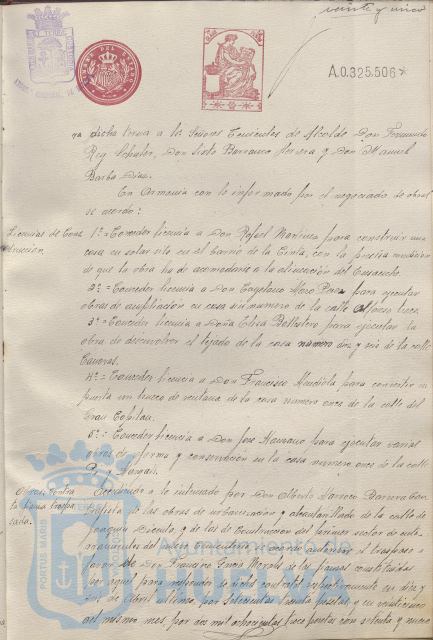 veinte y cinco
A.0.325.506*
dicha terna a los Señores Concejales de Alcalde Don Fernando
Rey Don Sixto Barranco Herrera y Don Manuel
Barba Díaz.
En Armonía con lo informado por el negociado de obras
se acordó:
Licencias de Cons
trucción.
1º = Conceder licencia a Don Rafael Martínez para construir una
casa en solar sito en el barrio de la Cinta, con la precisa condición
de que la obra ha de acomodarse a la alineación del Ensanche.
2º = Conceder licencia a Don Cayetano Moro Pérez para ejecutar
obras de ampliación en casa sin numero de la calle Alfonso Doce.
3º = Conceder licencia a Doña Elisa Ballestero para ejecutar la
obra de desenvolver el tejado de la casa número dos y seis de la calle
Canovas.
4º = Conceder licencia a Don Francisco Mendiola para convertir en
puerta un hueco de ventana de la casa número once de la calle del
Gran Capitan.
5º = Conceder licencia a Don José Navarro para ejecutar varias
obras de forma y conservación en la casa número once de la calle
Accediendo a lo interesado por Don Alberto Barrera Con
tratista de las obras de urbanización y alcantarillado de la calle de
Joaquín y de las de Construcción del primer sector de
del nuevo cementerio, se acordó autorizar el traspaso a
favor de Don Francisco García Morales de las fianzas constituidas
por aquel para responder de dichos contratos respectivamente en diez y
seis de Abril último, por setecientas treinta pesetas, y en veinticinco
del mismo mes por dos mil ochocientas doce pesetas con setenta y nueve
PORTUS MARIS
Ayuntamiento de